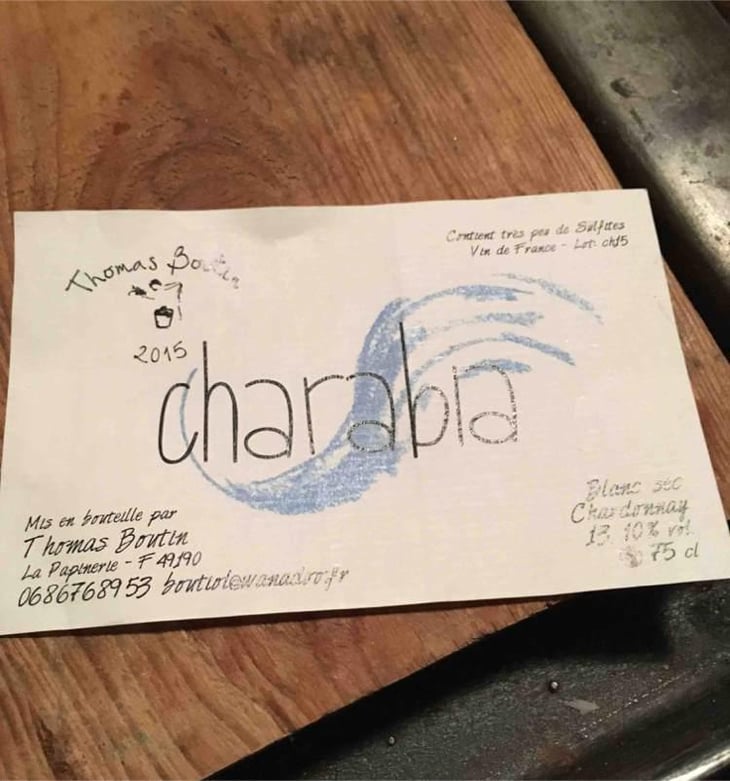 Thomas Boutin
2015
Contient très peu de Sulfites
Vin de France - Lot: ch15
charabia
Mis en bouteille par
Thomas Boutin
La Papinerie - F 49190
0686768953
Blanc sec
Chardonnay
13.10% vol
75 cl